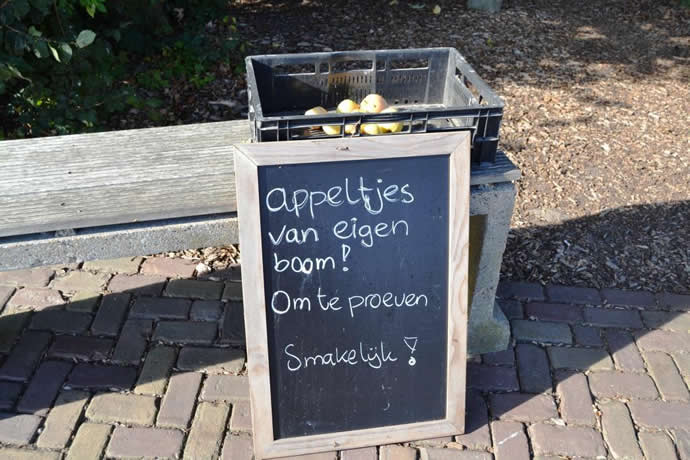 appeltjes
van eigen
boom!
Om te proeven
Smakelijk!